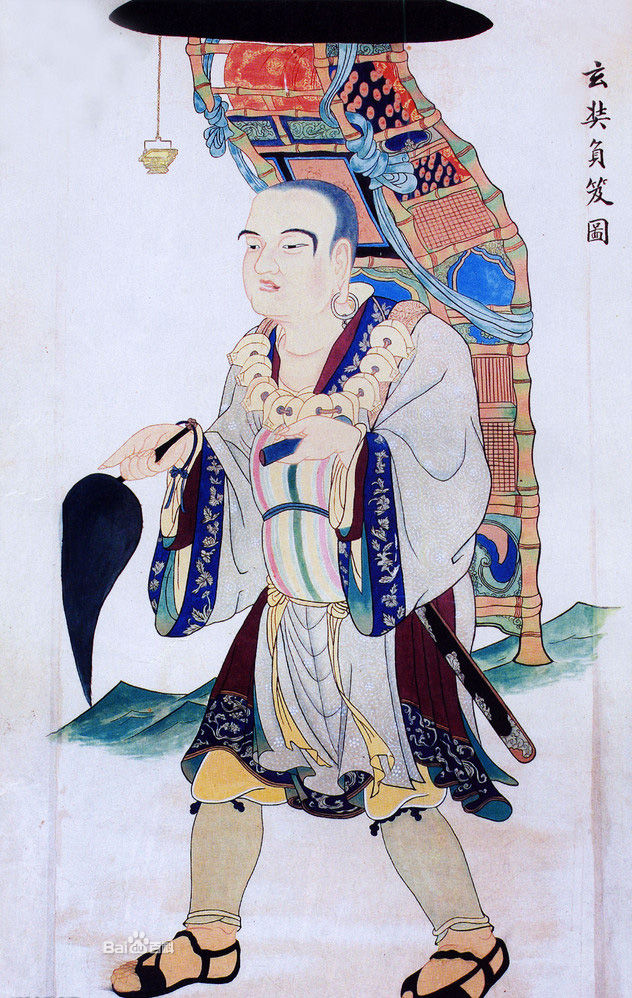 玄奘負笈圖
Bai百科